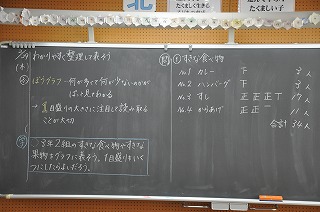 北
たくましい子
わかりやすく整理して表そう
(木)
ぼうグラフ…何が多くて何が少ないのかが
ぱっと見てわかる
→ 1目盛りの大きさに注目して読み取る
ことが大切
3年2組のすきな食べ物やすきな
果物をグラフに表そう。1目盛りをいく
つにしたらよいだろう。
問 1 すきな食べ物
No.1 カレー 下 3人
No.2 ハンバーグ 下 3人
No.3 すし 正正正丁 17人
No.4 からあげ 正正一 11人
合計 34人